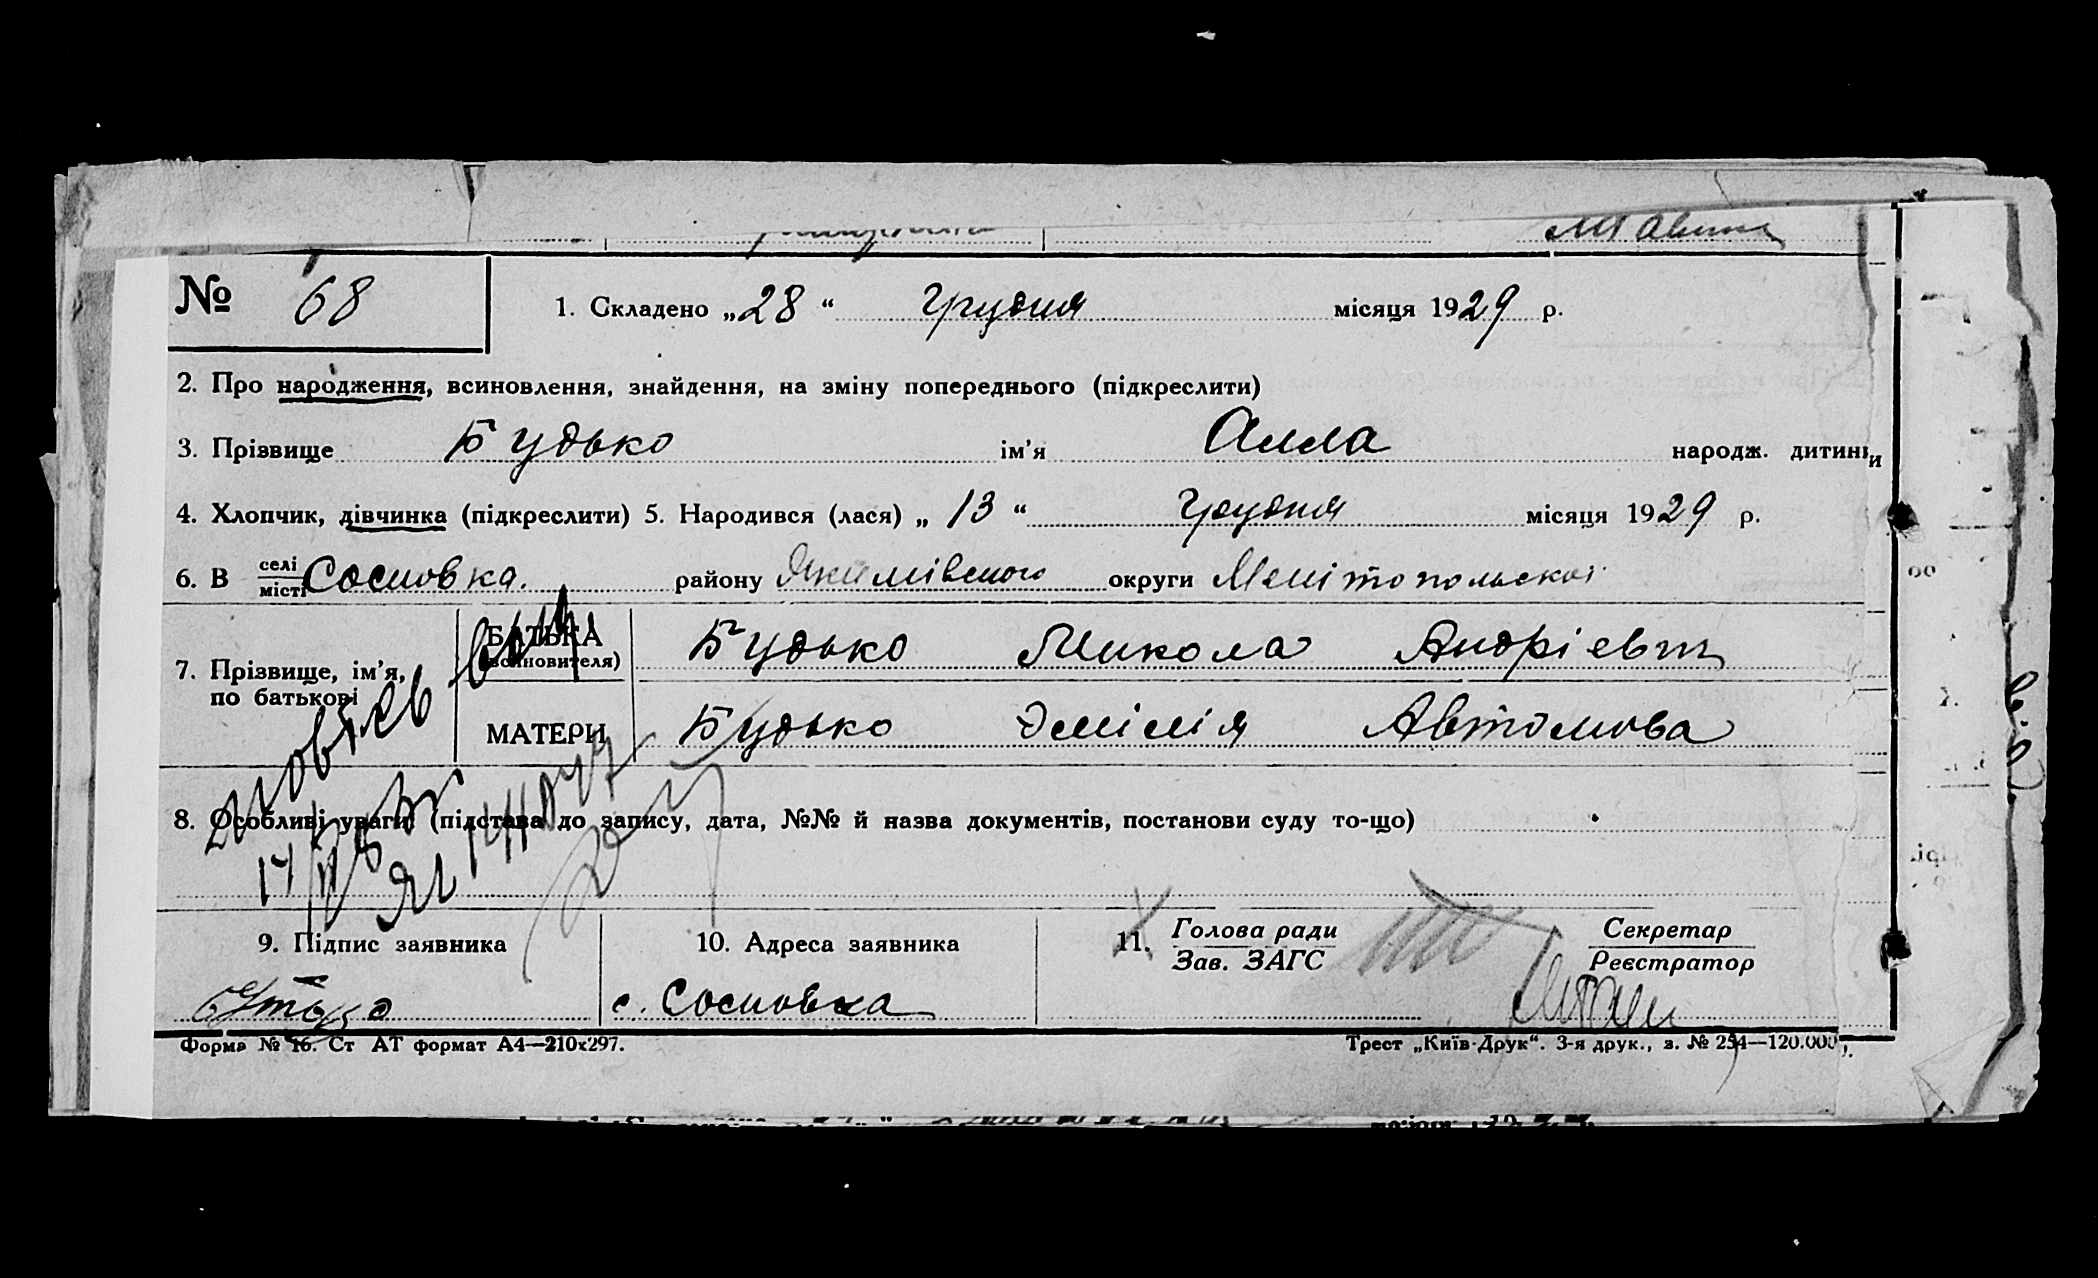 № 68
1. Складено „28“ грудня місяця 1929 р.
2. Про народження, всиновлення, знайдення, на зміну попереднього (підкреслити)
3. Прізвище Будько ім'я Алла народж. дитини
4. Хлопчик, дівчинка (підкреслити) 5. Народився (лася) „13“ грудня місяця 1929 р.
6. В селі/місті Сосновка. району Якимівського округи Мелітопольської
7. Прізвище, ім'я, по батькові
БАТЬКА (всиновителя) Будько Микола Андрієвич
МАТЕРИ Будько Эмілія Автомова
8. Особливі уваги (підстава до запису, дата, №№ й назва документів, постанови суду то-що)
9. Підпис заявника
10. Адреса заявника
11. Голова ради / Зав. ЗАГС
Секретар / Реєстратор
с. Сосновка
Форма № 16. Ст АТ формат А4—210х297.
Трест „Київ-Друк“. 3-я друк., з. № 254—120.000